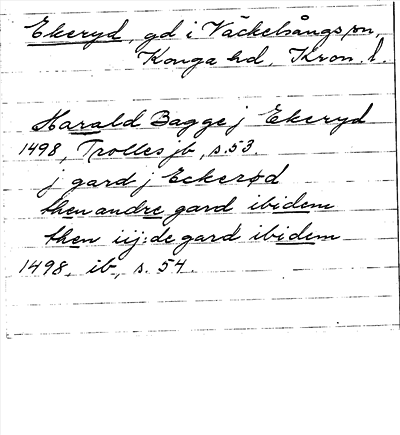 Ekeryd, gd i Väckelsångs sn,
Konga hd, Kron. l.
Harald Bagge j Ekeryd
1498, Trolles jb, s. 53.
j gard j Eckerød
then andre gard ibidem
then iij:de gard ibidem
1498, ib., s. 54.